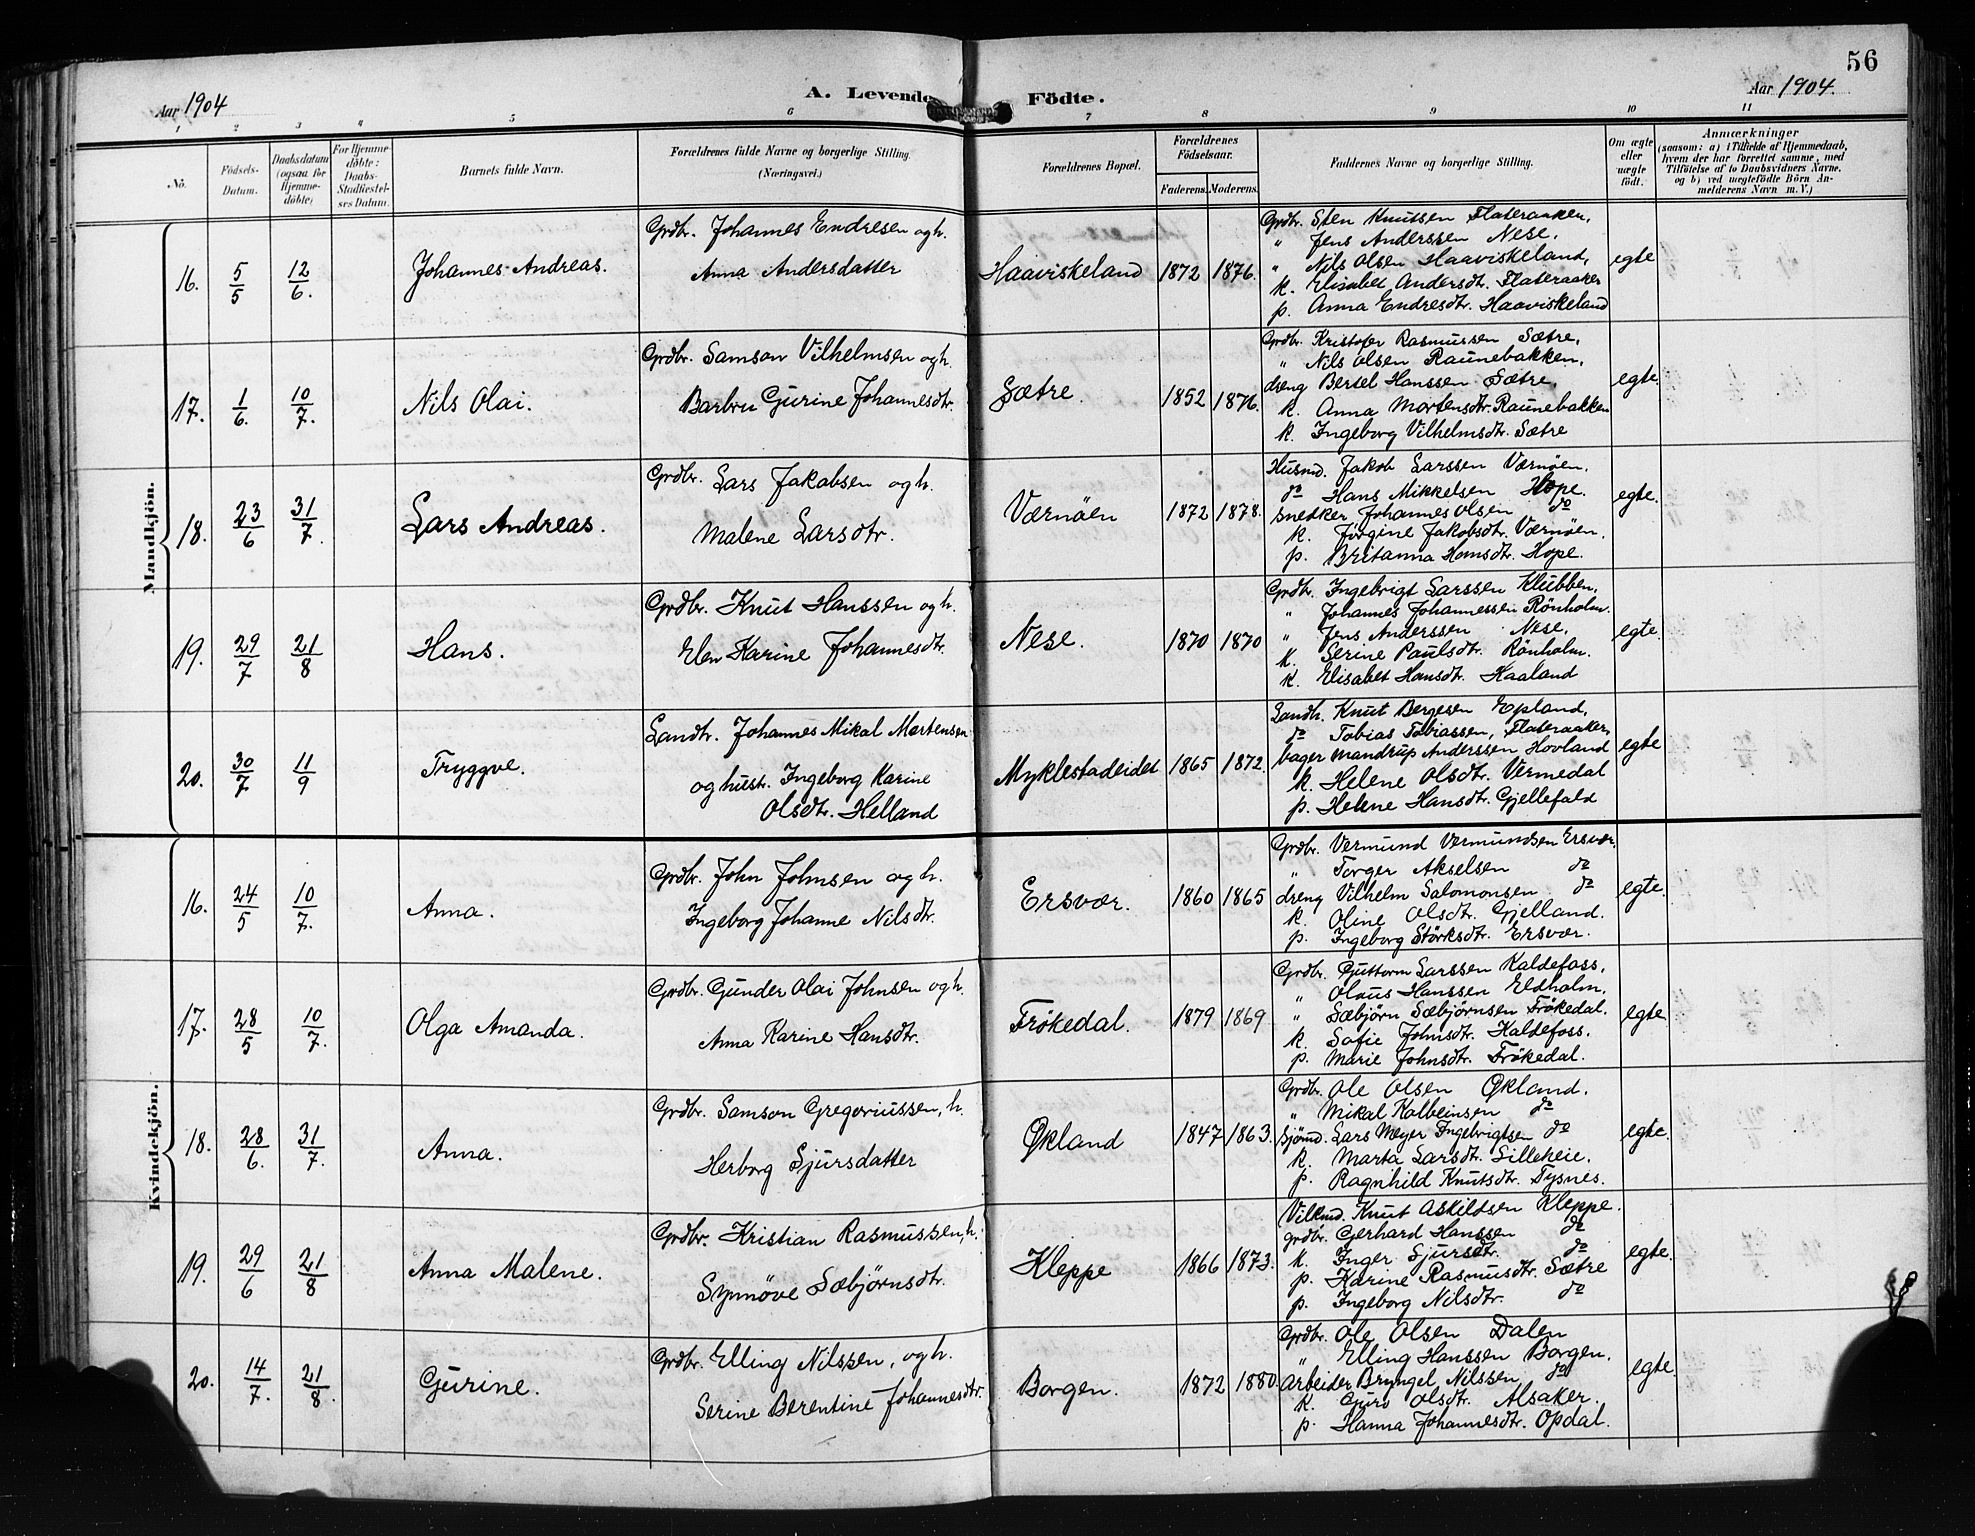 56
Aar 1904 A. Levende Födte. Aar 1904.
1 2 3 4 5 6 7 8 9 10 11
No.
Födsels-
Datum.
Daabsdatum
(ogsaa for
Hjemme-
döbte)
For Hjemme-
döbte:
Daabs-
Stadfæstel-
ses Datum.
Barnets fulde Navn.
Forældrenes fulde Navne og borgerlige Stilling.
(Næringsvei.)
Forældrenes Bopæl.
Forældrenes
Födselsaar.
Faderens. Moderens.
Faddernes Navne og borgerlige Stilling.
Om ægte
eller
uægte
födt.
Anmærkninger
(saasom: a) i Tilfælde af Hjemmedaab,
hvem der har forrettet samme, med
Tilföielse af to Daabsvidners Navne,
og b) ved uægtefödte Börn An-
melderens Navn m. V.)
Mandkjön.
16. 5/5 12/6. Johannes Andreas.
Grdbr. Johannes Endresen og h.
Anna Andersdatter
Haaviskeland 1872 1876.
Grdbr. Sten Knutsen Flateraaken,
" Jens Anderssen Nese,
" Nils Olsen Haaviskeland,
k. Elisabet Andersdt. Flateraaker
p. Anna Endresdt. Haaviskeland
egte
17. 1/6. 10/7. Nils Olai.
Grdbr. Samson Vilhelmsen og h.
Barbru Gurine Johannesdtr.
Sætre. 1852 1876.
Grdbr. Kristofer Rasmussen Sætre,
" Nils Olsen Raunebakken,
dreng Bertel Hanssen Sætre,
k. Anna Mortensdtr. Raunebakken
k. Ingeborg Vilhelmsdt. Sætre
egte.
18. 23/6 31/7. Lars Andreas.
Grdbr. Lars Jakobsen og h.
Malene Larsdtr.
Værnöen 1872 1878.
Husmd. Jakob Larssen Værnöen.
do Hans Mikkelsen Hope.
snedker Johannes Olsen do
k. Jörgine Jakobsdt. Værnöen.
p. Britanna Hansdt. Hope.
egte.
19. 29/7 21/8 Hans.
Grdbr. Knut Hanssen og h.
Elen Karine Johannesdtr.
Nese. 1870 1870
Grdbr. Ingebrigt Larssen Klubben,
" Johannes Johannessen Rönholm.
" Jens Anderssen Nese.
k. Serine Paulsdtr. Rönholm.
k. Elisabet Hansdt. Haaland
egte.
20. 30/7 11/9 Tryggve.
Landh. Johannes Mikal Mortensen
og hustr. Ingeborg Karine
Olsdtr. Helland
Myklestadeidet 1865 1872.
Landh. Knut Bergesen Epland,
do Tobias Tobiassen, Flateraaker,
bager Mandrup Anderssen Hovland
k. Helene Olsdt. Vermedal
p. Helene Hansdt. Gjellefald
egte
Kvindekjön.
16. 24/5 10/7. Anna.
Grdbr. John Johnsen og h.
Ingeborg Johanne Nilsdtr.
Ersvær. 1860 1865
Grdbr. Vermund Vermundsen Ersvær,
" Torger Akselsen do
dreng Vilhelm Salomonsen do
k. Oline Olsdtr. Gjelland.
p. Ingeborg Störksdtr. Ersvær.
egte.
17. 28/5 10/7. Olga Amanda.
Grdbr. Gunder Olai Johnsen og h.
Anna Karine Hansdtr.
Frökedal. 1879 1869
Grdbr. Guttorm Larssen Kaldefoss,
" Olaus Hanssen Eldholm,
" Sæbjörn Sæbjörnsen Frökedal.
k. Sofie Johnsdt. Kaldefoss.
p. Marie Johnsdt. Frökedal.
egte.
18. 28/6. 31/7. Anna.
Grdbr. Samson Gregoriussen, h.
Herborg Sjursdatter
Økland 1847 1863.
Grdbr. Ole Olsen Økland.
" Mikal Kolbeinsen do
Sjömd. Lars Meyer Ingebrigtsen do
k. Marta Larsdt. Lilleheie.
p. Ragnhild Knutsdt. Tysnes.
egte.
19. 29/6 21/8 Anna Malene.
Grdbr. Kristian Rasmussen, h.
Synnöve Sæbjörnsdt.
Kleppe 1866 1873.
Vilkmd. Knut Askildsen Kleppe.
grdbr. Gerhard Hanssen do
k. Inger Sjursdtr. do
p. Karine Rasmusdtr. Sætre
p. Ingeborg Nilsdtr. do
egte.
20. 14/7. 21/8. Gurine.
Grdbr. Elling Nilssen, og h.
Serine Berentine Johannesdtr.
Borgen. 1872 1880.
Grdbr. Ole Olsen Dalen
" Elling Hanssen Borgen.
Arbeider Bryngel Nilssen, do
k. Guro Olsdt. Alsaker.
p. Hanna Johannesdt. Opdal.
egte.